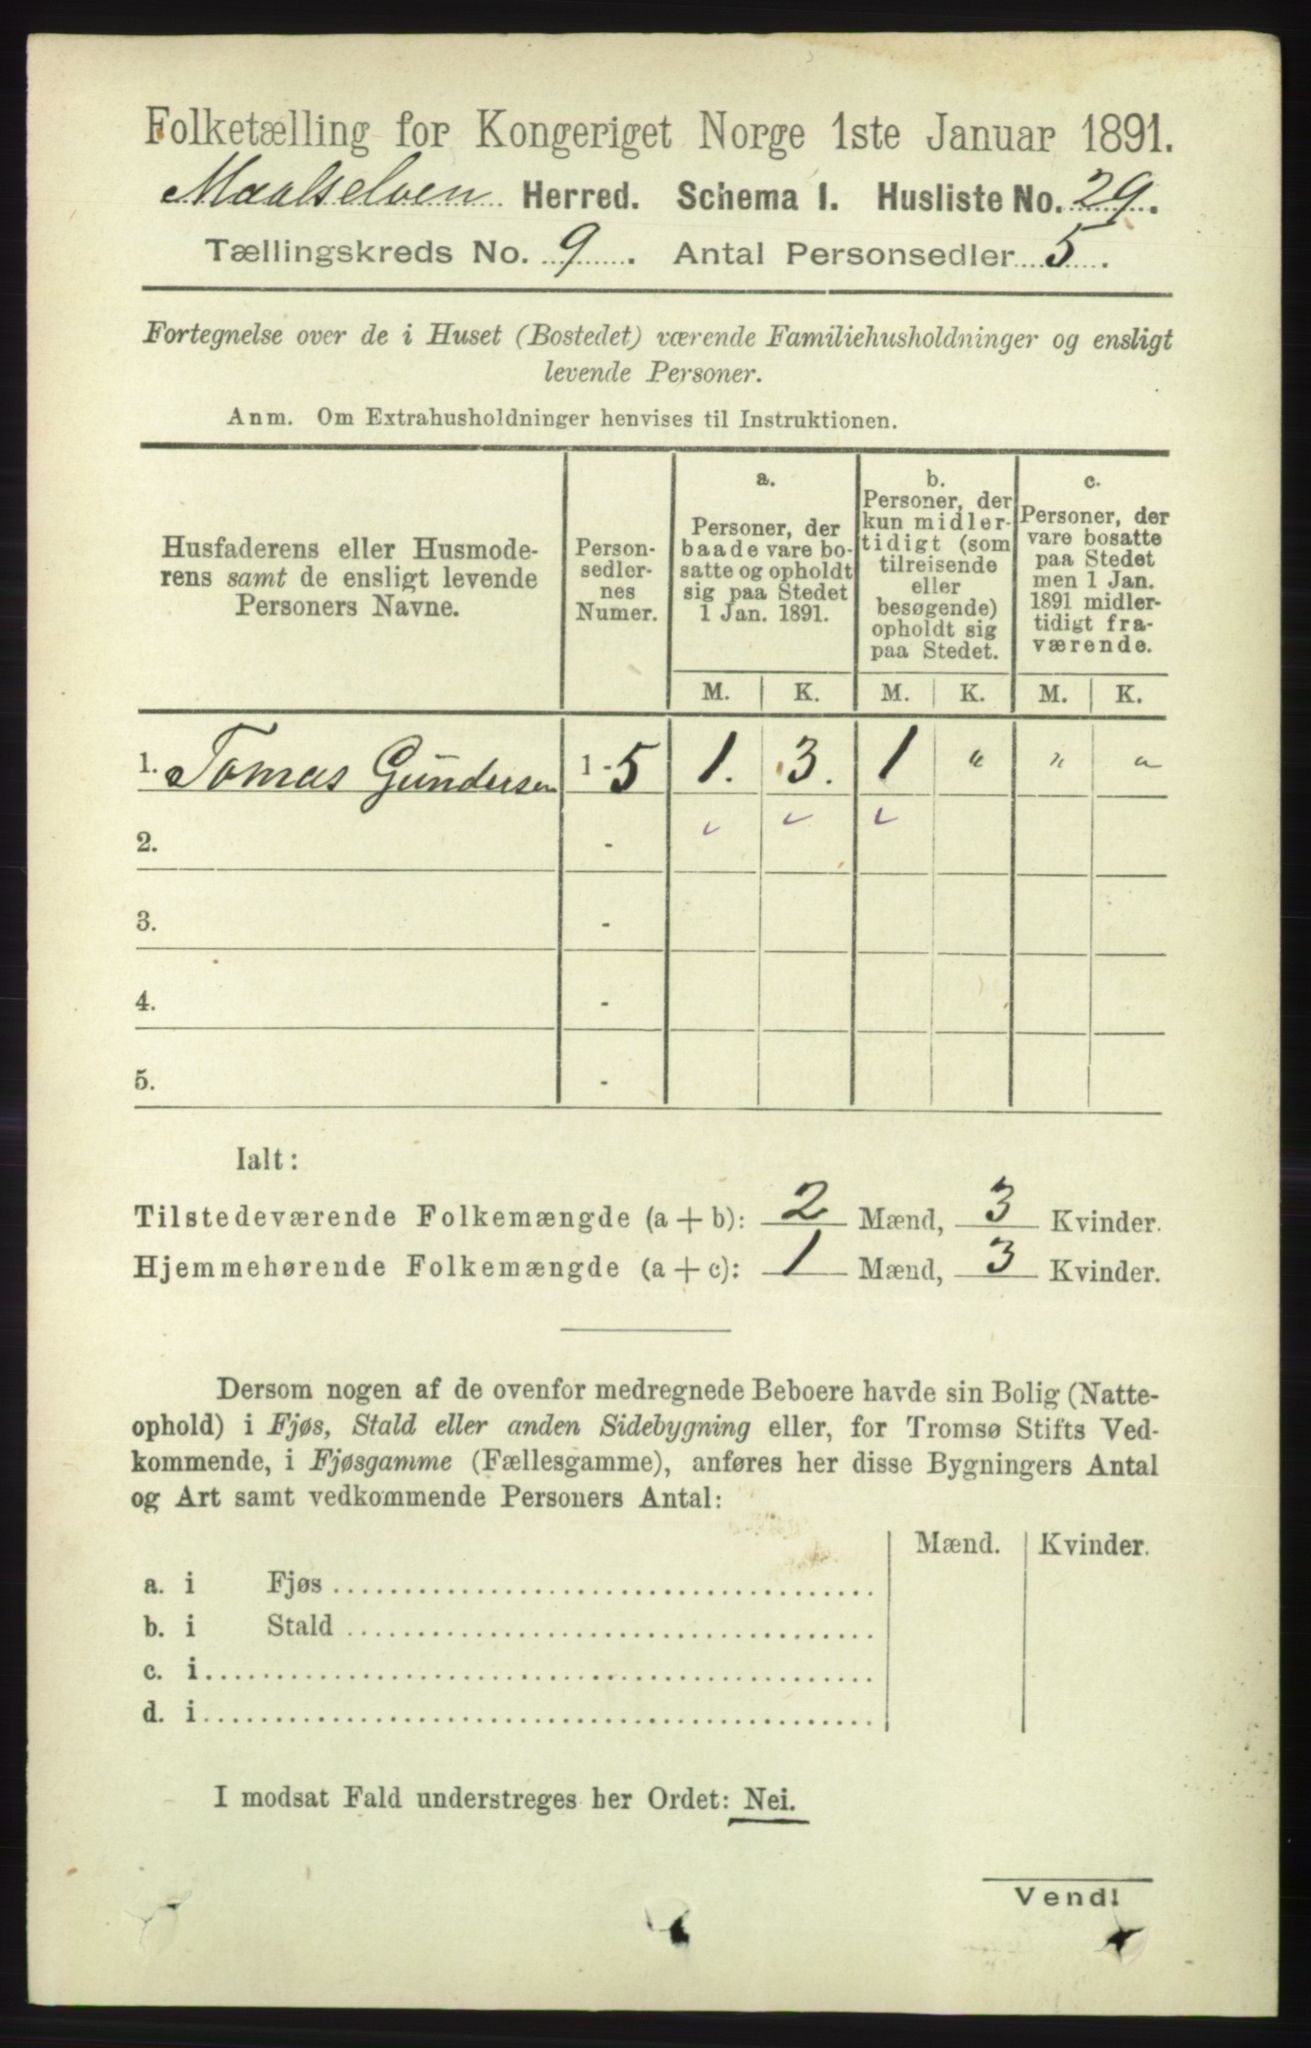 Folketælling for Kongeriget Norge 1ste Januar 1891.
Maalselven Herred. Schema I. Husliste No. 29.
Tællingskreds No. 9. Antal Personsedler 5.
Fortegnelse over de i Huset (Bostedet) værende Familiehusholdninger og ensligt
levende Personer.
Anm. Om Extrahusholdninger henvises til Instruktionen.
Husfaderens eller Husmode-
rens samt de ensligt levende
Personers Navne.
Person-
sedler-
nes
Numer.
a.
Personer, der
baade vare bo-
satte og opholdt
sig paa Stedet
1 Jan. 1891.
b.
Personer, der
kun midler-
tidigt (som
tilreisende
eller
besøgende)
opholdt sig
paa Stedet.
c.
Personer, der
vare bosatte
paa Stedet
men 1 Jan.
1891 midler-
tidigt fra-
værende.
M. K. M. K. M. K.
1. Tomas Gundersen 1-5 1. 3. 1 " " "
2. -
3. -
4. -
5. -
Ialt:
Tilstedeværende Folkemængde (a + b): 2 Mænd, 3 Kvinder.
Hjemmehørende Folkemængde (a + c): 1 Mænd, 3 Kvinder.
Dersom nogen af de ovenfor medregnede Beboere havde sin Bolig (Natte-
ophold) i Fjøs, Stald eller anden Sidebygning eller, for Tromsø Stifts Ved-
kommende, i Fjøsgamme (Fællesgamme), anføres her disse Bygningers Antal
og Art samt vedkommende Personers Antal:
Mænd. Kvinder.
a. i Fjøs
b. i Stald
c. i
d. i
I modsat Fald understreges her Ordet: Nei.
Vend!